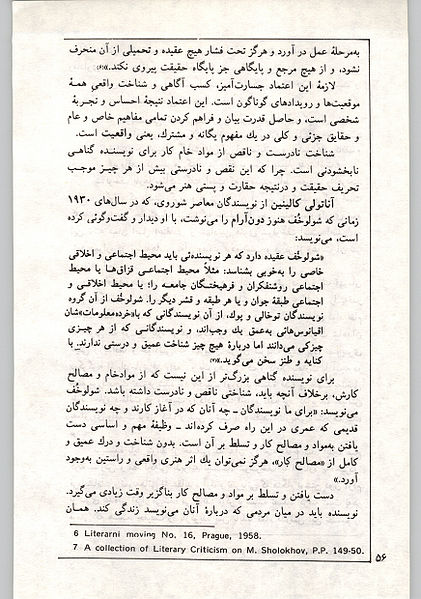 به‌مرحلهٔ عمل در آورد و هرگز تحت فشار هیچ عقیده و تحمیلی از آن منحرف
نشود، و از هیچ مرجع و پایگاهی جز پایگاه حقیقت پیروی نکند.»(۶)
لازمهٔ این اعتماد جسارت‌آمیز، کسب آگاهی و شناخت واقعی همهٔ
موقعیت‌ها و رویدادهای گوناگون است. این اعتماد نتیجهٔ احساس و تجربهٔ
شخصی است، و حاصل قدرت بیان و فراهم کردن تمامی مفاهیم خاص و عام
و حقایق جزئی و کلی در یك مفهوم یگانه و مشترك، یعنی واقعیت است.
شناخت نادرست و ناقص از مواد خام کار برای نویسنده گناهی
نابخشودنی است. چرا که این نقص و نادرستی بیش از هر چیز موجب
تحریف حقیقت و درنتیجه حقارت و پستی هنر می‌شود.
آناتولی کالینین از نویسندگان معاصر شوروی، که در سال‌های ۱۹۳۰
زمانی که شولوخُف هنوز دون‌آرام را می‌نوشت، با او دیدار و گفت‌وگوئی کرده
است، می‌نویسد:
«شولوخُف عقیده دارد که هر نویسنده‌ئی باید محیط اجتماعی و اخلاقی
خاصی را به‌خوبی بشناسد: مثلاً محیط اجتماعی قزاق‌ها یا محیط
اجتماعی روشنفکران و فرهیختگان جامعه را؛ یا محیط اخلاقی و
اجتماعی طبقهٔ جوان و یا هر طبقه و قشر دیگر را. شولوخُف از آن گروه
نویسندگان توخالی و پوك، از آن نویسندگانی که با«خرده‌معلومات»شان
اقیانوس‌هائی به‌عمق یك وجب‌اند، و نویسندگانی که از هر چیزی
چیزکی می‌دانند اما دربارهٔ هیچ چیز شناخت عمیق و درستی ندارند، با
کنایه و طنز سخن می‌گوید.»(۷)
برای نویسنده گناهی بزرگ‌تر از این نیست که از موادخام و مصالح
کارش، برخلاف آنچه باید، شناختی ناقص و نادرست داشته باشد. شولوخُف
می‌نویسد: «برای ما نویسندگان ـ چه آنان که در آغاز کارند و چه نویسندگان
قدیمی که عمری در این راه صرف کرده‌اند ـ وظیفهٔ مهم و اساسی دست
یافتن به‌مواد و مصالح کار و تسلط بر آن است. بدون شناخت و درك عمیق و
کامل از «مصالح کار»، هرگز نمی‌توان یك اثر هنری واقعی و راستین به‌وجود
آورد.»
دست یافتن و تسلط بر مواد و مصالح کار بناگزیر وقت زیادی می‌گیرد.
نویسنده باید در میان مردمی که دربارهٔ آنان می‌نویسد زندگی کند. همان
6 Literarni moving No. 16, Prague, 1958.
7 A collection of Literary Criticism on M. Sholokhov, P.P. 149-50.
۵۶